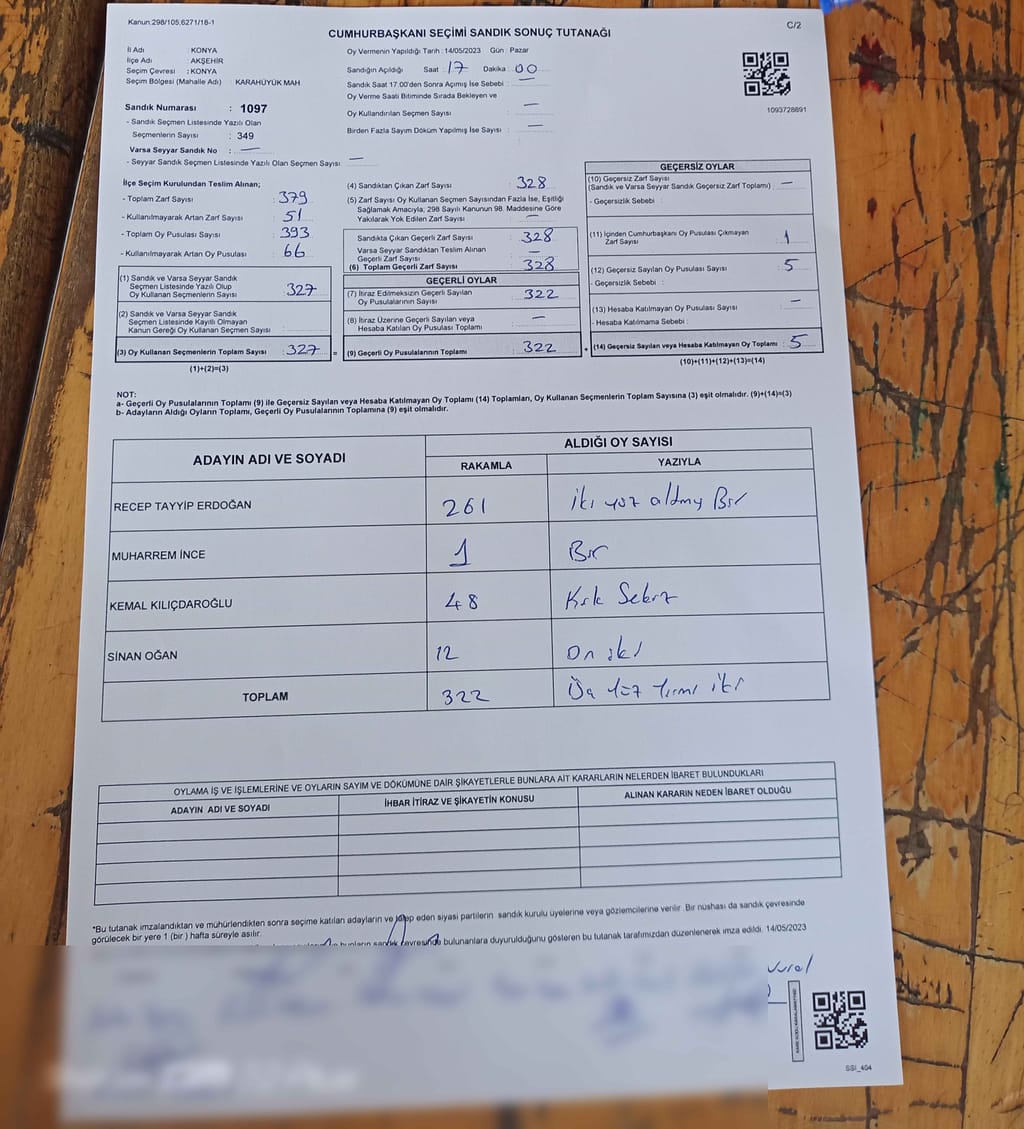 Kanun:298/105,6271/18-1
C/2
CUMHURBAŞKANI SEÇİMİ SANDIK SONUÇ TUTANAĞI
İl Adı : KONYA
İlçe Adı : AKŞEHİR
Seçim Çevresi : KONYA
Seçim Bölgesi (Mahalle Adı) : KARAHÜYÜK MAH
Sandık Numarası : 1097
- Sandık Seçmen Listesinde Yazılı Olan
Seçmenlerin Sayısı : 349
Varsa Seyyar Sandık No : —
- Seyyar Sandık Seçmen Listesinde Yazılı Olan Seçmen Sayısı : —
Oy Vermenin Yapıldığı Tarih : 14/05/2023 Gün : Pazar
Sandığın Açıldığı Saat : 17 Dakika : 00
Sandık Saat 17.00'den Sonra Açımış İse Sebebi : —
Oy Verme Saati Bitiminde Sırada Bekleyen ve
Oy Kullandırılan Seçmen Sayısı : —
Birden Fazla Sayım Döküm Yapılmış İse Sayısı : —
1093728891
İlçe Seçim Kurulundan Teslim Alınan;
- Toplam Zarf Sayısı : 379
- Kullanılmayarak Artan Zarf Sayısı : 51
- Toplam Oy Pusulası Sayısı : 393
- Kullanılmayarak Artan Oy Pusulası : 66
(1) Sandık ve Varsa Seyyar Sandık
Seçmen Listesinde Yazılı Olup
Oy Kullanan Seçmenlerin Sayısı : 327
(2) Sandık ve Varsa Seyyar Sandık
Seçmen Listesinde Kayıtlı Olmayan
Kanun Gereği Oy Kullanan Seçmen Sayısı :
(3) Oy Kullanan Seçmenlerin Toplam Sayısı : 327 =
(1)+(2)=(3)
(4) Sandıktan Çıkan Zarf Sayısı : 328
(5) Zarf Sayısı Oy Kullanan Seçmen Sayısından Fazla İse, Eşitliği
Sağlamak Amacıyla, 298 Sayılı Kanunun 98. Maddesine Göre
Yakılarak Yok Edilen Zarf Sayısı : —
Sandıkta Çıkan Geçerli Zarf Sayısı : 328
Varsa Seyyar Sandıktan Teslim Alınan
Geçerli Zarf Sayısı : —
(6) Toplam Geçerli Zarf Sayısı : 328
GEÇERLİ OYLAR
(7) İtiraz Edilmeksizin Geçerli Sayılan
Oy Pusulalarının Sayısı : 322
(8) İtiraz Üzerine Geçerli Sayılan veya
Hesaba Katılan Oy Pusulası Toplamı : —
(9) Geçerli Oy Pusulalarının Toplamı : 322 +
GEÇERSİZ OYLAR
(10) Geçersiz Zarf Sayısı
(Sandık ve Varsa Seyyar Sandık Geçersiz Zarf Toplamı) : —
- Geçersizlik Sebebi :
(11) İçinden Cumhurbaşkanı Oy Pusulası Çıkmayan
Zarf Sayısı : 1
(12) Geçersiz Sayılan Oy Pusulası Sayısı : 5
- Geçersizlik Sebebi :
(13) Hesaba Katılmayan Oy Pusulası Sayısı : —
- Hesaba Katılmama Sebebi :
(14) Geçersiz Sayılan veya Hesaba Katılmayan Oy Toplamı : 5
(10)+(11)+(12)+(13)=(14)
NOT:
a- Geçerli Oy Pusulalarının Toplamı (9) ile Geçersiz Sayılan veya Hesaba Katılmayan Oy Toplamı (14) Toplamları, Oy Kullanan Seçmenlerin Toplam Sayısına (3) eşit olmalıdır. (9)+(14)=(3)
b- Adayların Aldığı Oyların Toplamı, Geçerli Oy Pusulalarının Toplamına (9) eşit olmalıdır.
ADAYIN ADI VE SOYADI
ALDIĞI OY SAYISI
RAKAMLA YAZIYLA
RECEP TAYYİP ERDOĞAN 261 iki yüz altmış Bir
MUHARREM İNCE 1 Bir
KEMAL KILIÇDAROĞLU 48 Kırk Sekiz
SİNAN OĞAN 12 On iki
TOPLAM 322 Üç Yüz Yirmi iki
OYLAMA İŞ VE İŞLEMLERİNE VE OYLARIN SAYIM VE DÖKÜMÜNE DAİR ŞİKAYETLERLE BUNLARA AİT KARARLARIN NELERDEN İBARET BULUNDUKLARI
ADAYIN ADI VE SOYADI İHBAR İTİRAZ VE ŞİKAYETİN KONUSU ALINAN KARARIN NEDEN İBARET OLDUĞU
*Bu tutanak imzalandıktan ve mühürlendikten sonra seçime katılan adayların ve talep eden siyasi partilerin sandık kurulu üyelerine veya gözlemcilerine verilir. Bir nüshası da sandık çevresinde
görülecek bir yere 1 (bir) hafta süreyle asılır.
bunların sandık çevresinde bulunanlara duyurulduğunu gösteren bu tutanak tarafımızdan düzenlenerek imza edildi. 14/05/2023
Vural
SSI_404